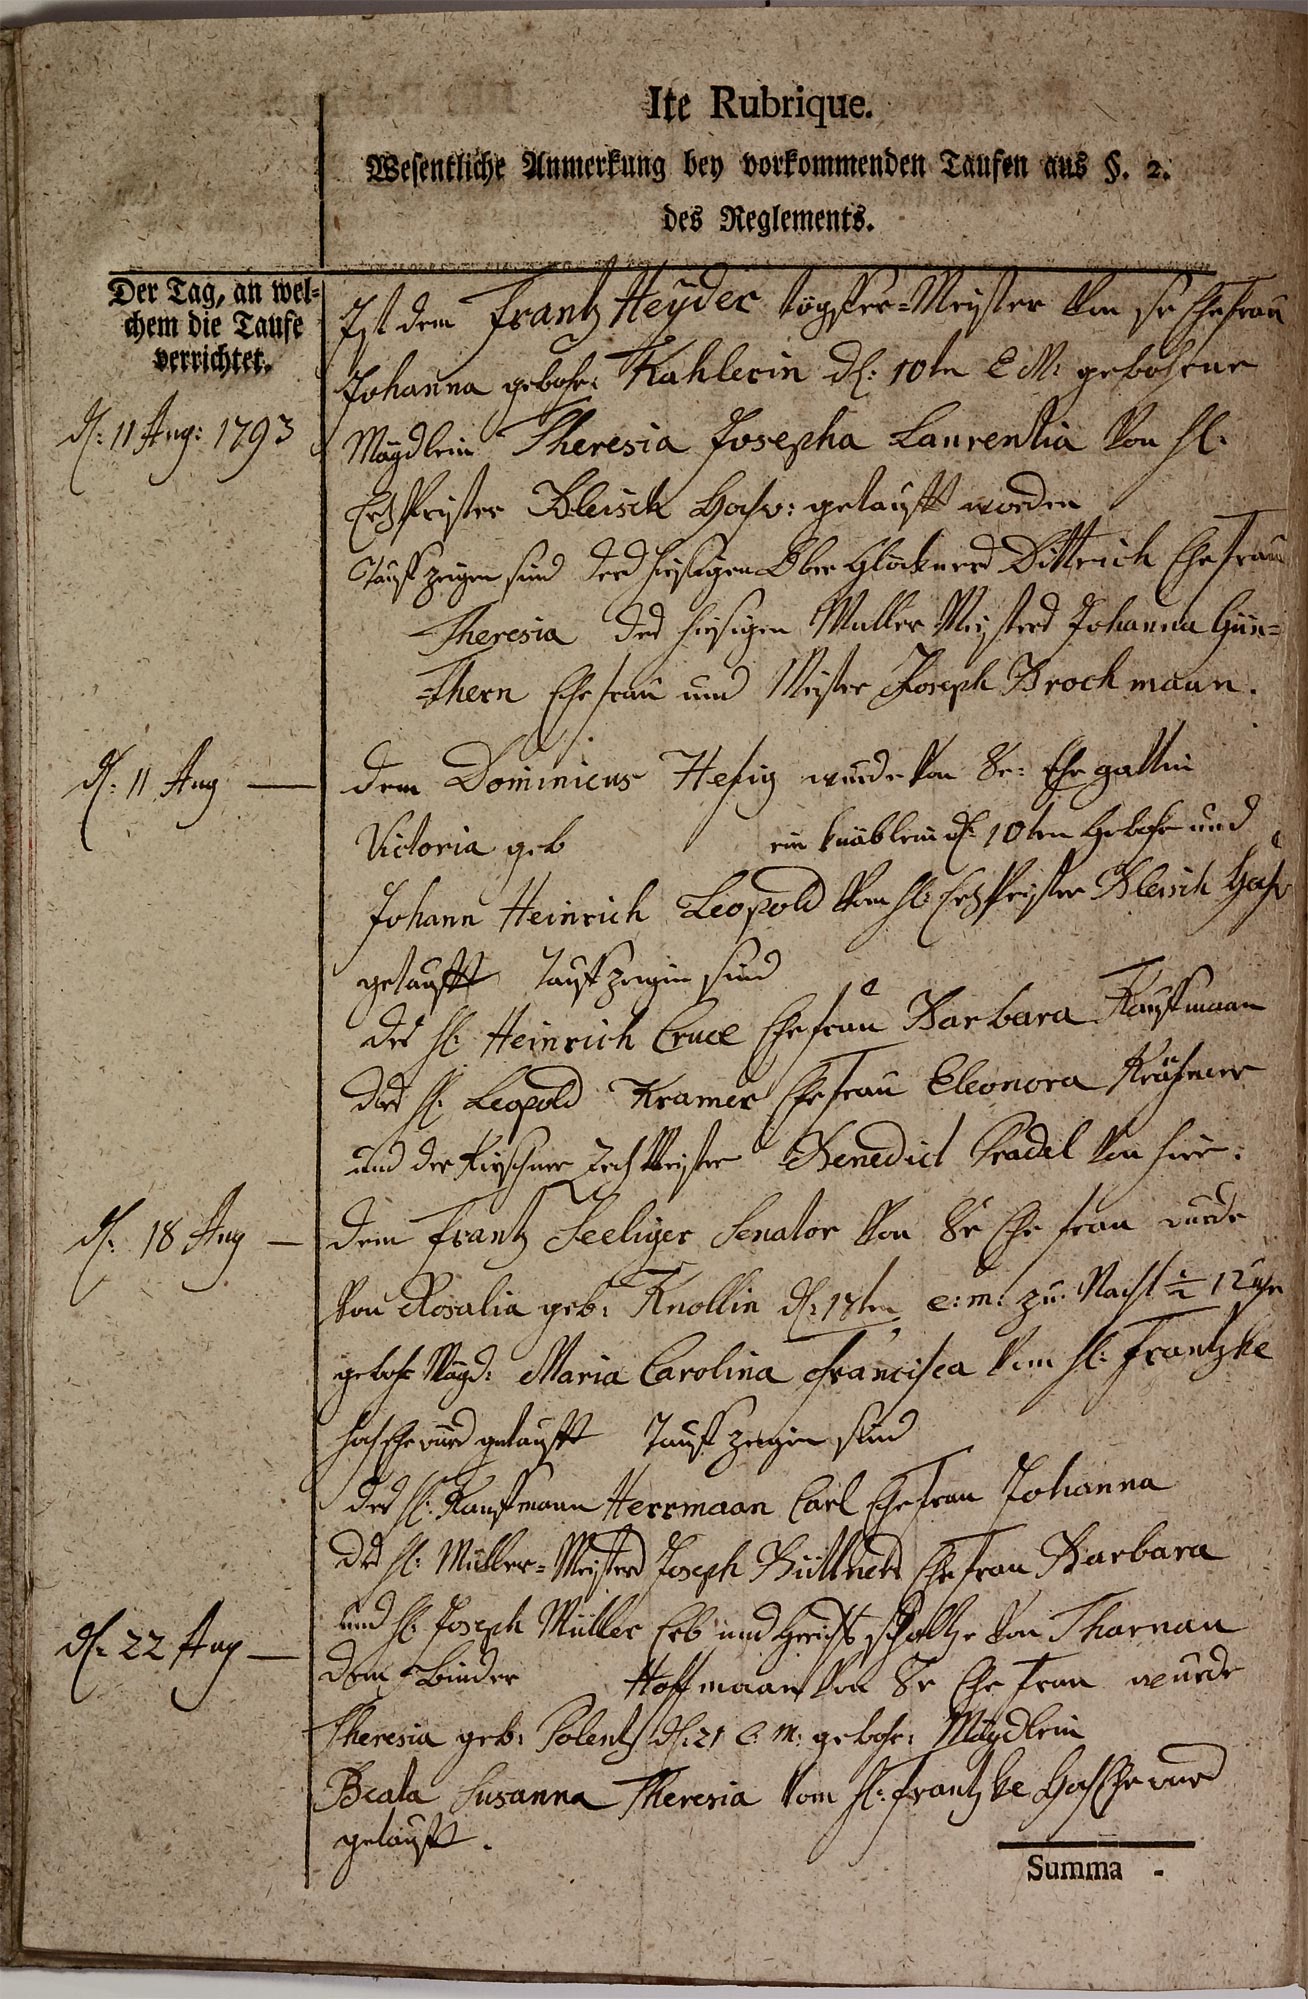 Ite Rubrique.
Wesentliche Anmerkung bey vorkommenden Taufen aus §. 2.
des Reglements.
Der Tag, an wel-
chem die Taufe
verrichtet.
d: 11 Aug: 1793
Ist dem Frantz Heyder töpffer-Meister von sr Ehefrau
Johanna gebohr: Kahlerin d: 10ten e M: gebohrne
Mägdlein Theresia Josepha Laurentia von H:
ErtzPrister Bleisch Hochw: getaufft worden
Tauffzeigen sind des hiesigen Ober Glöckners Dittrich Ehefrau
Theresia des hiesigen Müller Meisters Johanna Gün-
thern Ehefrau und Meister Joseph Brochmann.
d: 11 Aug —
dem Dominicus Hesig wurde von Sr: Ehegattin
Victoria geb ein knäblein d: 10ten Gebohr und
Johann Heinrich Leopold vom H: ErtzPrister Bleisch Hochw
getaufft Tauffzeigin sind
des H: Heinrich Cruce Ehefrau Barbara Kauffmann
des H: Leopold Kramer Ehefrau Eleonora
und der Kirschner ZechMeister Benedict Pradel von hier:
d: 18 Aug —
dem Frantz Seeliger Senator von Sr Ehe frau wurde
von Rosalia geb: Knollin d: 18ten e: m: zu Nacht ½ 12 Uhr
gebohr Mägd: Maria Carolina Francisca vom H: Frantzke
HochEhrwürd getaufft Tauff zeigin sind
des H: Kauffmann Herrmann Carl Ehefrau Johanna
des H: Müller-Meisters Joseph Büttners Ehefrau Barbara
und H: Joseph Müller Erb und Gerichts scholtze von Tharnau
d: 22 Aug —
dem Binder Hoffmann von Sr Ehe frau wurde
Theresia geb: Polentz d: 21 e: m: gebohr: Mägdlein
Beata Susanna Theresia vom H: Frantzke HochEhrwürd
getaufft.
Summa -